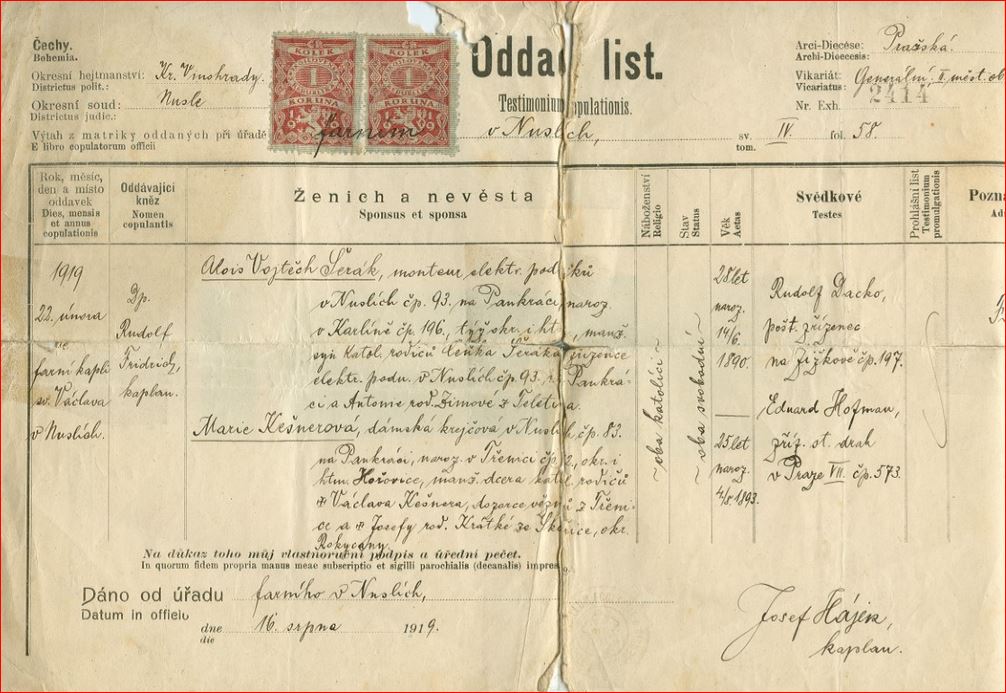 Čechy.
Bohemia.
Okresní hejtmanství: Kr. Vinohrady.
Districtus polit.:
Okresní soud: Nusle
Districtus judic.:
Výtah z matriky oddaných při úřadě farním v Nuslích, sv. IV. fol. 58
E libro copulatorum officii tom.
KOLEK
1
KORUNA
1919
KOLEK
1
KORUNA
1919
Oddac list.
Testimonium copulationis.
Arci-Diecése: Pražská.
Archi-Dioecesis:
Vikariát: Generální. II. měst. ob
Vicariatus:
2414
Nr. Exh.
Rok, měsíc,
den a místo
oddavek
Dies, mensis
et annus
copulationis
Oddávající
kněz
Nomen
copulantis
Ženich a nevěsta
Sponsus et sponsa
Náboženství
Religio
Stav
Status
Věk
Aetas
Svědkové
Testes
Prohlášní list
Testimonium
promulgationis
Pozná
Ad
1919
22. února
ve
farní kapli
sv. Václava
v Nuslích.
Dp.
Rudolf
Fridrich,
kaplan.
Alois Vojtěch Šerák, monteur elektr. podniků
v Nuslích čp. 93. na Pankráci, naroz.
v Karlíně čp. 196, týž okr. i ht., manž.
syn katol. rodičů Čeňka Šeráka, zřízence
elektr. podn. v Nuslích čp. 93. Pankrá-
ci a Antonie rod. Zimové z Teletína.
Marie Kešnerova, dámská krejčová v Nuslích čp. 83.
na Pankráci, naroz. v Třenici čp. 2., okr. i
htm. Hořovice, manž. dcera katol. rodičů
Václava Kešnera, dozorce vězňů z Třeni-
ce a Josefy rod. Krátké ze Skořice, okr.
Rokycany.
~ oba katolíci ~
~ oba svobodní ~
28 let
naroz.
14/6.
1890.
25 let
naroz.
4/5. 1893.
Rudolf Dacko,
pošt. zřízenec
na Žižkově čp. 197.
Eduard Hofman,
zříz. st. drah
v Praze VII. čp. 573.
Na důkaz toho můj vlastnoruční podpis a úřední pečeť.
In quorum fidem propria manus meae subscriptio et sigilli parochialis (decanalis) impres
Dáno od úřadu farního v Nuslích,
Datum in officio
dne 16. srpna 1919.
die
Josef Hájek,
kaplan.